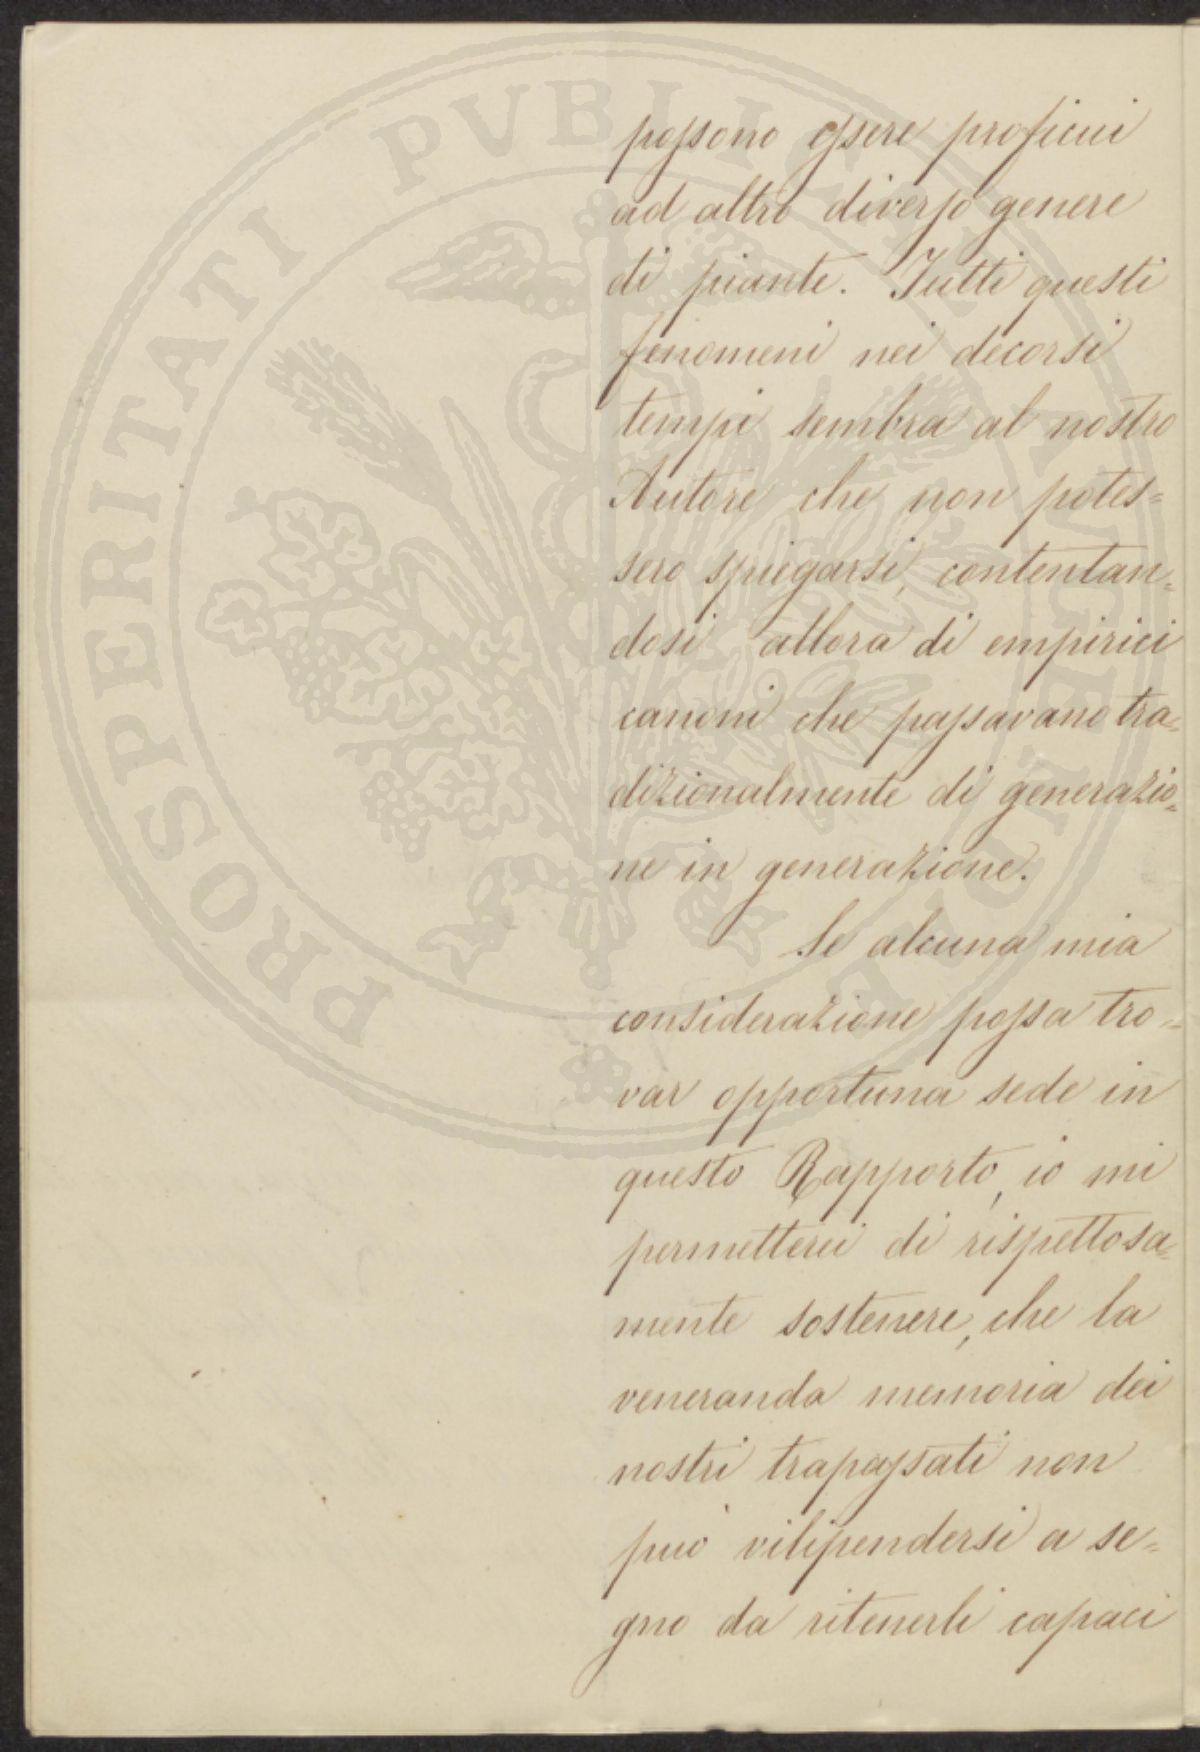 possono essere proficui
ad altro diverso genere
di piante. Tutti questi
fenomeni nei decorsi
tempi sembra al nostro
Autore che non potes=
sero spiegarsi, contentan=
dosi allora di empirici
canoni che passavano tra=
dizionalmente di generazio=
ne in generazione.
Se alcuna mia
considerazione possa tro=
var opportuna sede in
questo Rapporto, io mi
permetterei di rispettosa=
mente sostenere, che la
veneranda memoria dei
nostri trapassati non
può vilipendersi a se=
gno da ritenerli capaci
PROSPERITATI PVBLICAE